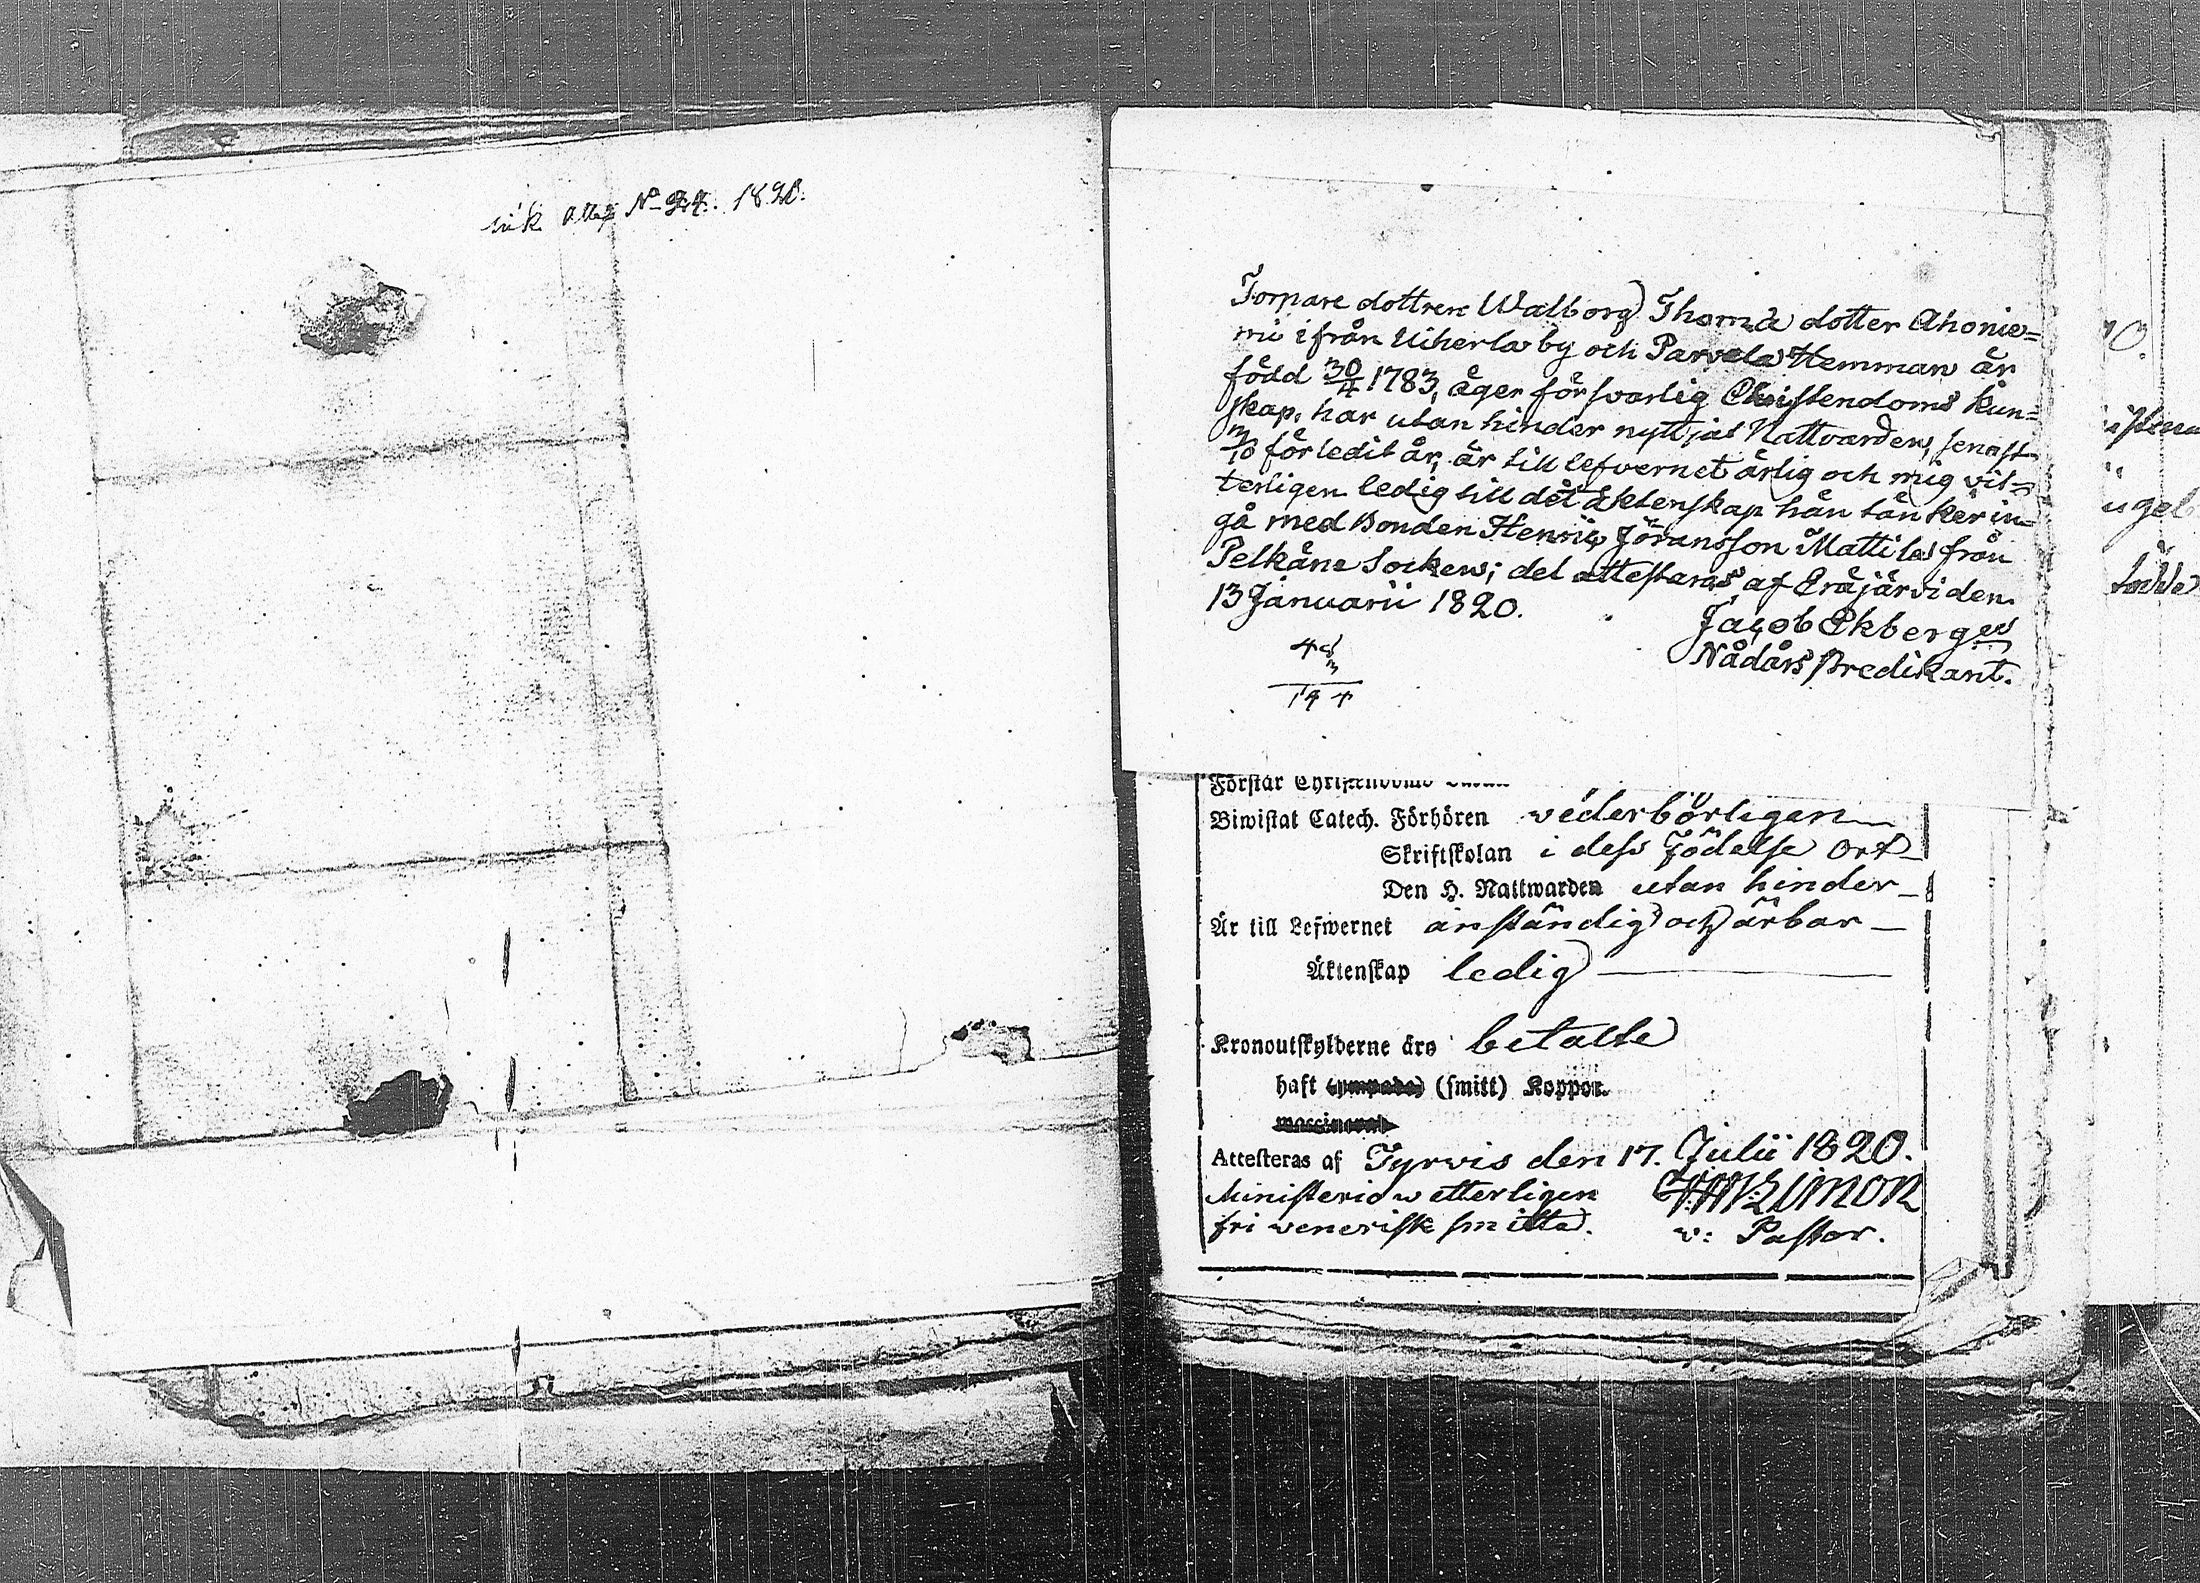 Attest No 24. 1820.
Torpare dottren Walborg Thoma dotter Ahonie=
mi ifrån Uiherla by och Parvela Hemman är
född 30/4 1783, äger försvarlig Christendoms kun=
skap, har utan hinder nyttjat Nattvarden, senast
förledit år, är till lefvernet ärlig och mig vit=
terligen ledig till det Ektenskap hän tänker in=
gå med Bonden Henric Jöransson Mattila från
Pelkäne Socken; det attesteras af Eräjärvi den
13 Januarii 1820.
Jacob Ekberg
Nådårs Predikant.
194
Förstår
Biwistat Catech. Förhören wederbörligen
Skriftskolan i dess Födelse Ort
Den H. Nattwarden utan hinder
Är till Lefwernet anständig och ärbar
Äktenskap ledig
Kronoutskylderne äro betalte
haft (smitt) Koppor.
Attesteras af Tyrvis den 17. Julii 1820.
Ministerio wetterligen
fri wenerisk smitta.
v: Pastor.